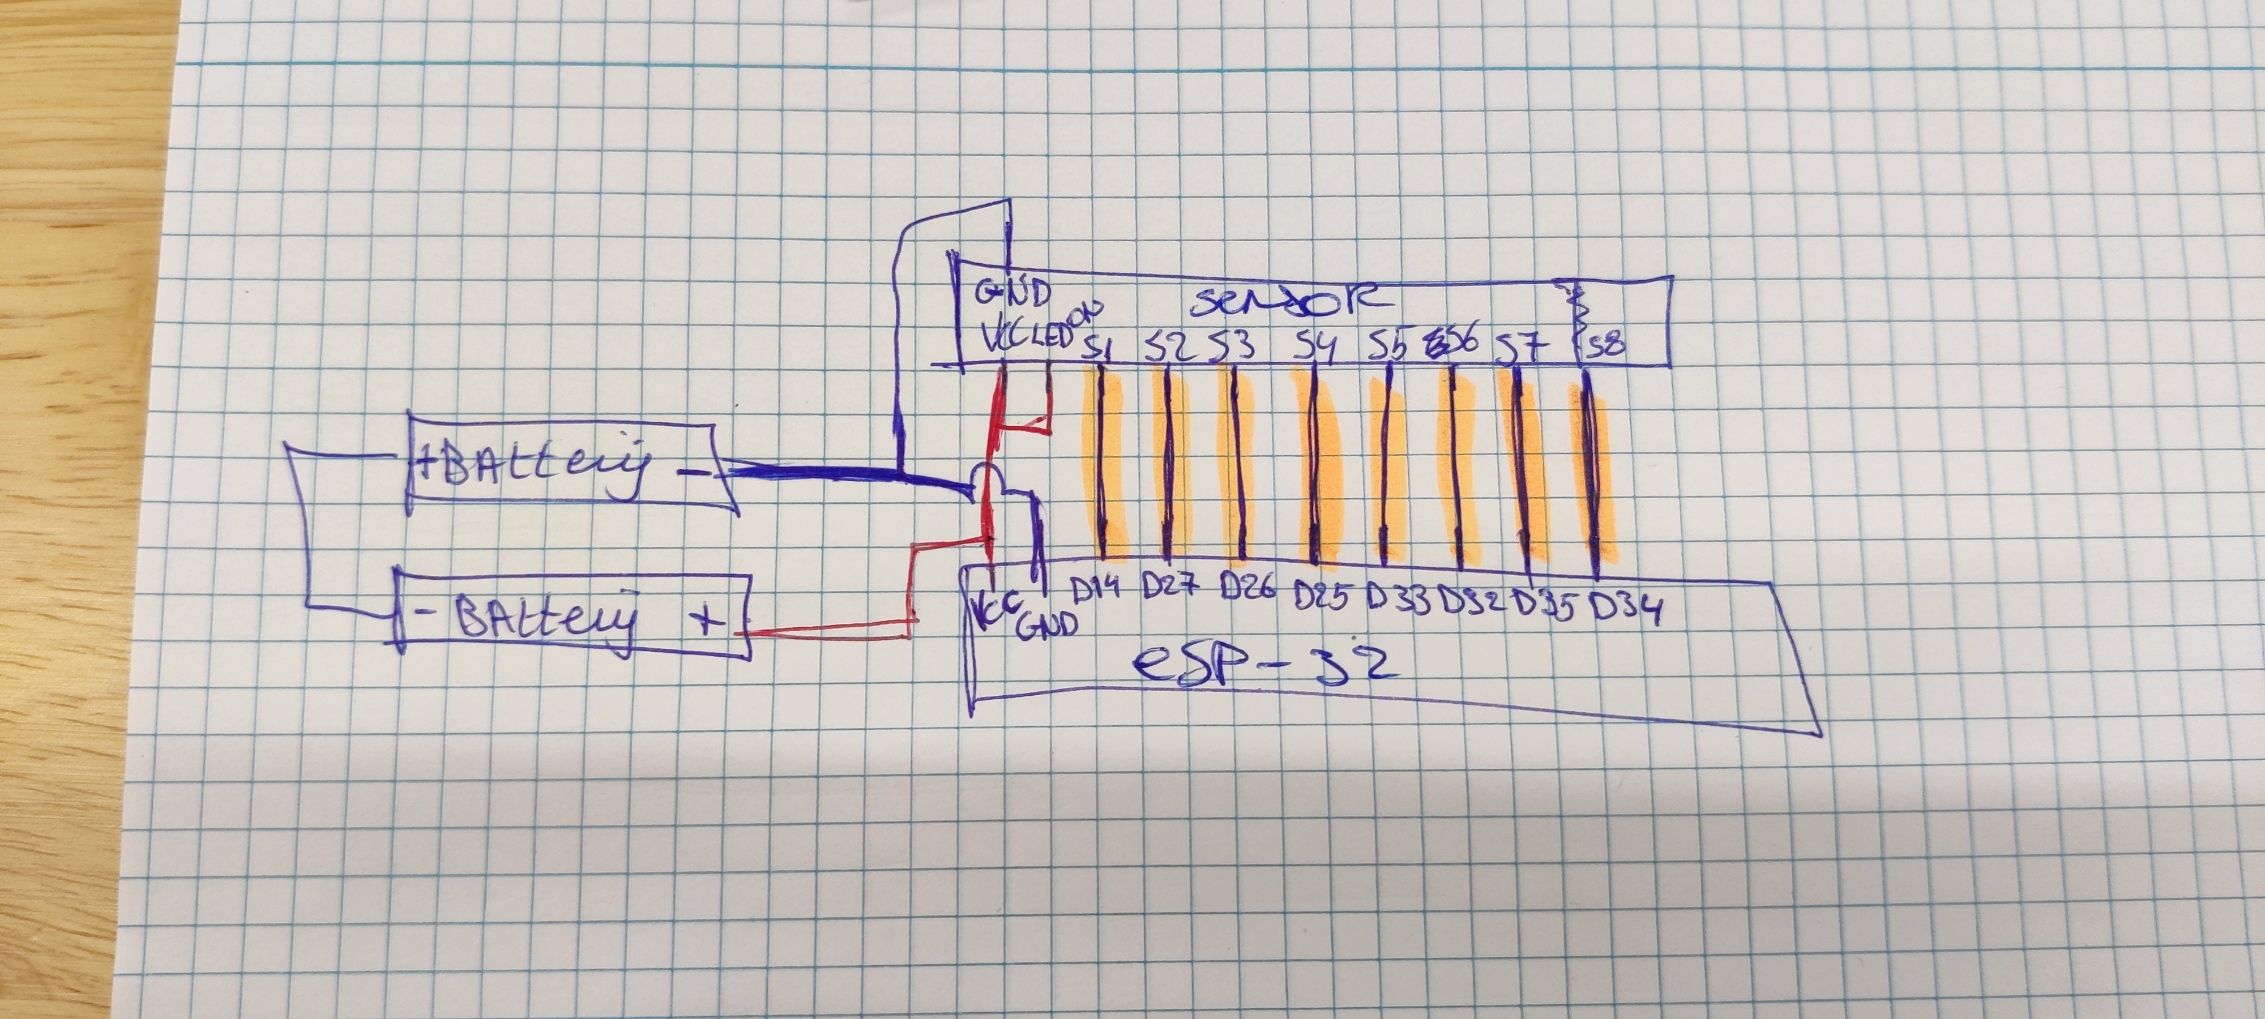 GND SENSOR
VCC LED ON S1 S2 S3 S4 S5 S6 S7 S8
+ BAttery -
- BAttery +
VCC GND D14 D27 D26 D25 D33 D32 D35 D34
eSP-32